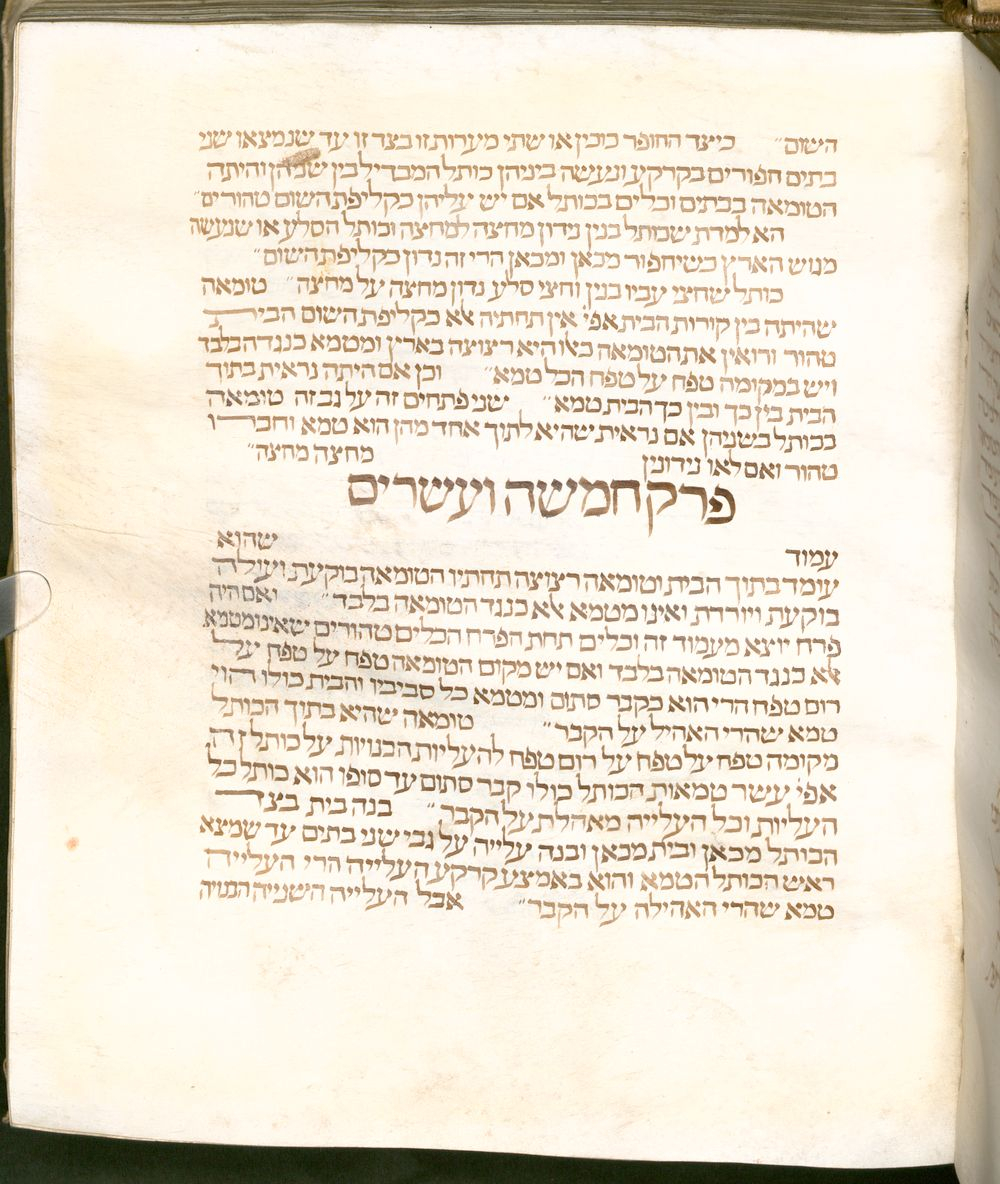 השום״ כיצד החופר כוכין או שתי מערות זו בצד זו עד שנמצאו שני
בתים חפורים בקרקע ונעשה ביניהן כותל המבדיל בין שתיהן והיתה
הטומאה בבתים וכלים בכותל אם יש עליהן כקליפת השום טהורים״
הא למדת שכותל בנין נידון מחצה למחצה וכותל הסלע או שנעשה
מגוש הארץ כשיחפור מכאן ומכאן הרי זה נדון כקליפת השום״
כותל שחצי עביו בנין וחצי סלע נדון מחצה על מחצה״ טומאה
שהיתה בין קורות הבית אפי׳ אין תחתיה לא כקליפת השום הבית
טהור ורואין את הטומאה כאלו היא רצוצה בארץ ומטמא כנגדה בלבד
ויש במקומה טפח על טפח הכל טמא״ וכן אם היתה נראית בתוך
הבית בין כך ובין כך הבית טמא״ שני פתחים זה על גב זה טומאה
בכותל בשניהן אם נראית שהיא לתוך אחד מהן הוא טמא וחברו
טהור ואם לאו נידונין מחצה מחצה״
פרק חמשה ועשרים
עמוד שהוא
עומד בתוך הבית וטומאה רצוצה תחתיו הטומאה בוקעת ועולה
בוקעת ויורדת ואינו מטמא לא כנגד הטומאה בלבד״ ואם היה
פרח יוצא מעמוד זה וכלים תחת הפרח הכלים טהורים שאינו מטמא
לא כנגד הטומאה בלבד ואם יש מקום הטומאה טפח על טפח על
רום טפח הרי הוא כקבר סתום ומטמא כל סביביו והבית כולו הוי
טמא שהרי האהיל על הקבר״ טומאה שהיא בתוך הכותל
מקומה טפח על טפח על רום טפח להעליות הבנויות על כותל זה
אפי׳ עשר טמאות הכותל כולו קבר סתום עד סופו הוא כותל כל
העליות וכל העלייה מאהלת על הקבר״ בנה בית בצד
הכותל מכאן ובית מכאן ובנה עלייה על גבי שני בתים עד שמצא
ראש הכותל הטמא והוא באמצע קרקע העלייה הרי העלייה
טמא שהרי האהילה על הקבר״ אבל העלייה השנייה הבנויה